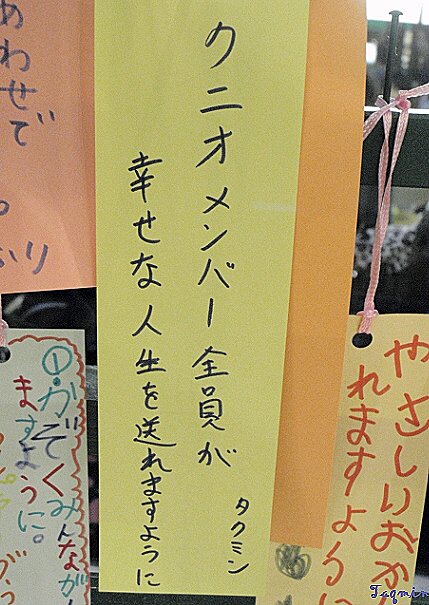 クニオメンバー全員が
幸せな人生を送れますように
タクミン
やさしいおか
れますように
①かぞくみんなが
ますように。
あわせで
Taqmin